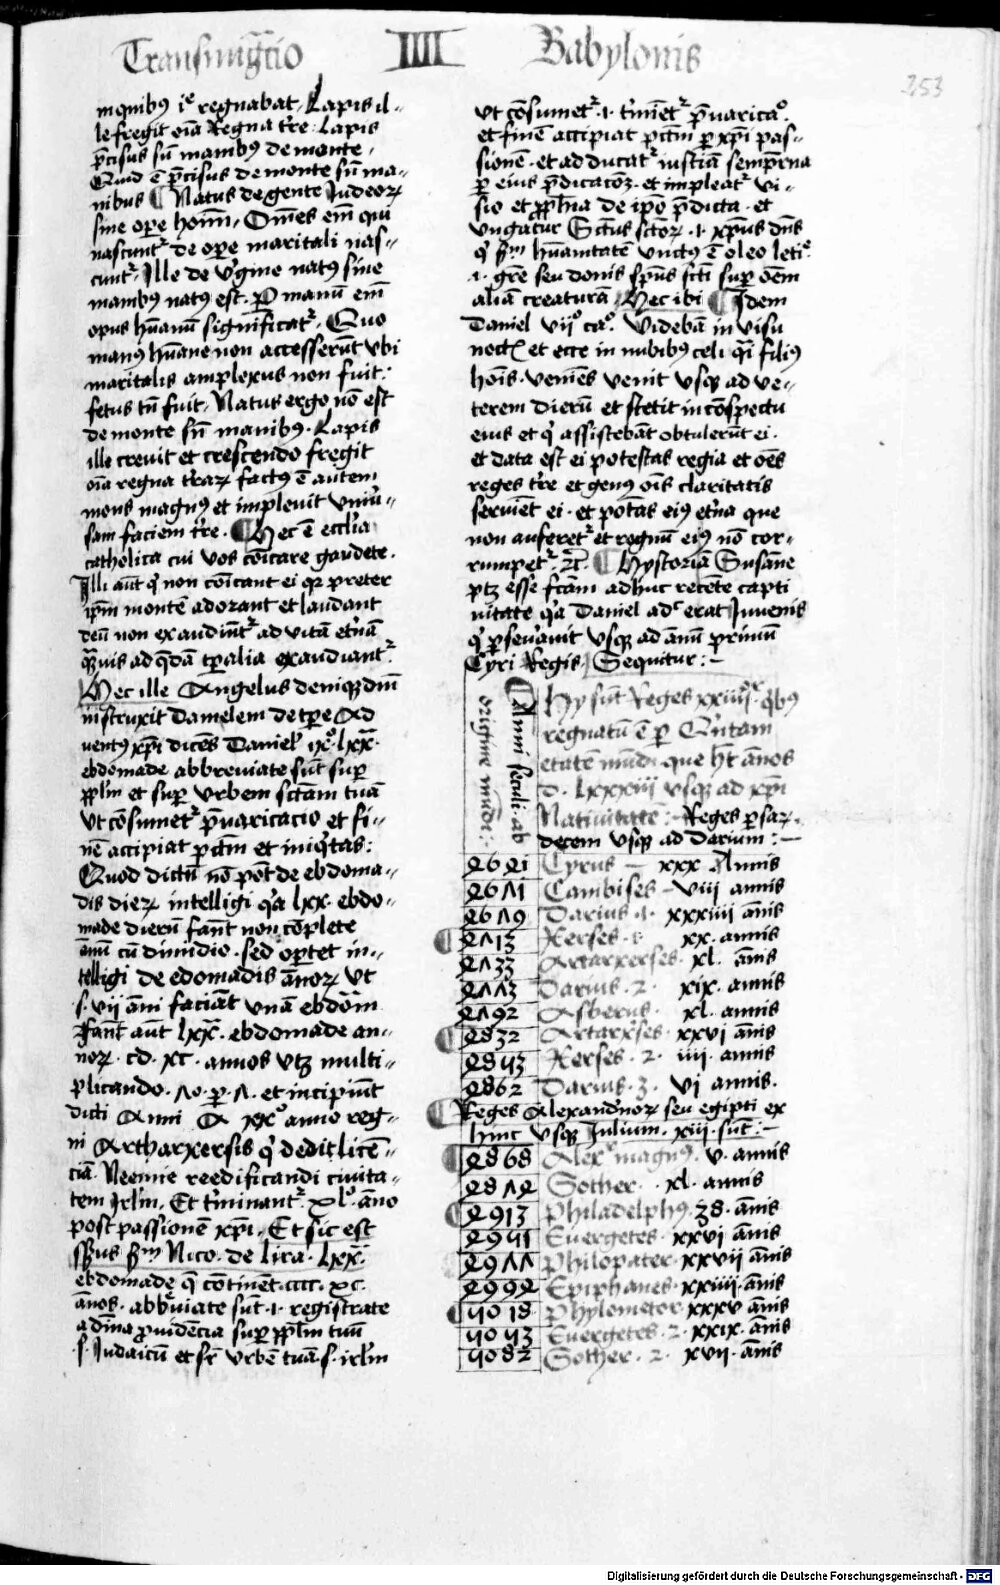 Transmigr̄cio IIII Babylonis
253
in quibus i⁹ regnabat. Lapis il-
le fregit oīa Regna tr̄e. Lapis
p̄cisus sn̄ manib⁹ de monte.
Quid ē p̄cisus de monte sn̄ ma-
nibus Natus de gente Judeoꝝ
sine oꝑe hoīm. Om̄es em̄ qui
nascunt² de oꝑe maritali nas-
cunt². Ille de v'gine nat⁹ sine
manib⁹ natus est. P manū em̄
opus hūanū significat². Quo
man⁹ hūane non accesserūt vbi
maritalis amplexus non fuit.
fetus tn̄ fuit. Natus ergo nō est
de monte sn̄ manib⁹. Lapis
ille crevit et crescendo fregit
oīa regna tr̄aꝝ fact⁹ ē autem
mons magn⁹ et implevit vniu'-
sam faciem tr̄e. Hec ē eccl'ia
catholica cui vos cōicare gaudete.
Illi aūt q' non cōicant ei qꝛ preter
ip̄m montē adorant et laudant
deū non exaudiūt² ad vitā et'nā
q̄mvis ad q̄dā tp̄alia exaudiant²
Hec ille Angelus deniqꝫ dn̄i
instruxit Danielem de tp̄e Ad
vent⁹ xp̄i dicēs Daniel' ix° lxx
ebdomade abbreviate sūt suꝑ
pp̄l'm et suꝑ vrbem sctām tuā
vt cōsumet² p̄uaricacio et fi-
nē accipiat pctm̄ et iniq'tas:
Quod dictū nō pōt de ebdoma-
dis dieꝝ intelligi q'a lxx ebdo-
made dierū faīt non cōplete
annū cū dimidio. sed oꝑtet in-
telligi de edomadis annoꝝ vt
.s. vii anni faciāt vnā ebdom̄
faīt aūt lxx. ebdomade an-
noꝝ. cd. xc. annos vtꝫ multi-
plicando. ꝑ. et incipiūt
dicti Anni A xx° anno reg-
ni Artharxersis q' dedit licē-
ciā Neemie reedificandi civita-
tem Jrl'm. Et t'minant² xl° āno
post passionē xp̄i. Et sic est
Nico. de lira. lxx
ebdomade q̄ cōtinēt. cccc. xc.
ānos. abbr̄uiate sūt .i. registrate
a diuīa ꝓvidēcia suꝑ pp̄l'm tuū
.s. Judaicū et sr̄ vrbē tuā .s. irl'm
vt cōsumet² .i. t'miet² p̄uarica°.
et finē accipiat pctm̄ ꝑ xp̄i pas-
sionē. et adducat² iusticiā semp̄na
ꝑ eius p̄dicacōꝫ. et impleat² vi-
sio et pph̄ia de ip̄o p̄dicta. et
vngatur Sctūs sctōꝝ .i. xp̄us dn̄s
q' hūanitatē vnct⁹ ē oleo leti°.
.i. grē seu donis sp̄us sct̄i suꝑ oēm
aliā creaturā. Hec ibi Idem
Daniel vii° ca°. Videbā in visu
noct̄ et ecce in nubib⁹ celi q̄i fili⁹
hoīs. veniēs venit vsqꝫ ad ve-
terem dierū et stetit in cōspectu
eius et q' assistebāt obtulerūt ei.
et data est ei potestas regia et oēs
reges tr̄e et gen⁹ oīs claritatis
serviēt ei. et pot'tas ei⁹ et'na que
non auferet² et regnū ei⁹ nō cor-
rumpet² ꝛc̄. Hystoriā Susāne
ptꝫ esse fcām adhuc recēte capti
uitate q'a Daniel adc erat Juvenis
q' ꝑseu'auit vsqꝫ ad ānū primū
Cyri Regis. Sequitur:-
Anni seculi ab
origine mūdi:
Hy sūt Reges xxiiii° q'b⁹
regnatū ē ꝑ Q'ntam
etatē mūdi que h̄t ānos
d. lxxxiii vsqꝫ ad xp̄i
Nativitatē: Reges ꝑsaꝝ.
decem vsqꝫ ad Darium:-
4641 Cyrus - xxx Annis
4671 Cambises - viii annis
4679 Darius .1. xxxiiii ānis
4713 Xerses .1. xx. annis
4733 Artarxerses. xl. ānis
4773 Darius .2. xix. annis
4792 Asverus. xl. annis
4832 Artarxses. xxvi ānis
4853 Xerses .2. iiii. annis
4862 Darius .3. vi annis.
Reges Alexand'noꝝ seu egipti ex
hinc vsqꝫ Julium. xiii. sūt:-
4868 Alex² magn⁹. v. annis
4874 Sother. xl. annis
4913 Philadelph⁹. 38. ānis
4951 Euergetes. xxvi ānis
4977 Philopater. xxvii ānis
4994 Epiphanes. xxiiii. ānis
5018 Phylometor xxxv ānis
5053 Euergetes .2. xxix. ānis
5082 Sother. 2. xvii. ānis
Digitalisierung gefördert durch die Deutsche Forschungsgemeinschaft - DFG